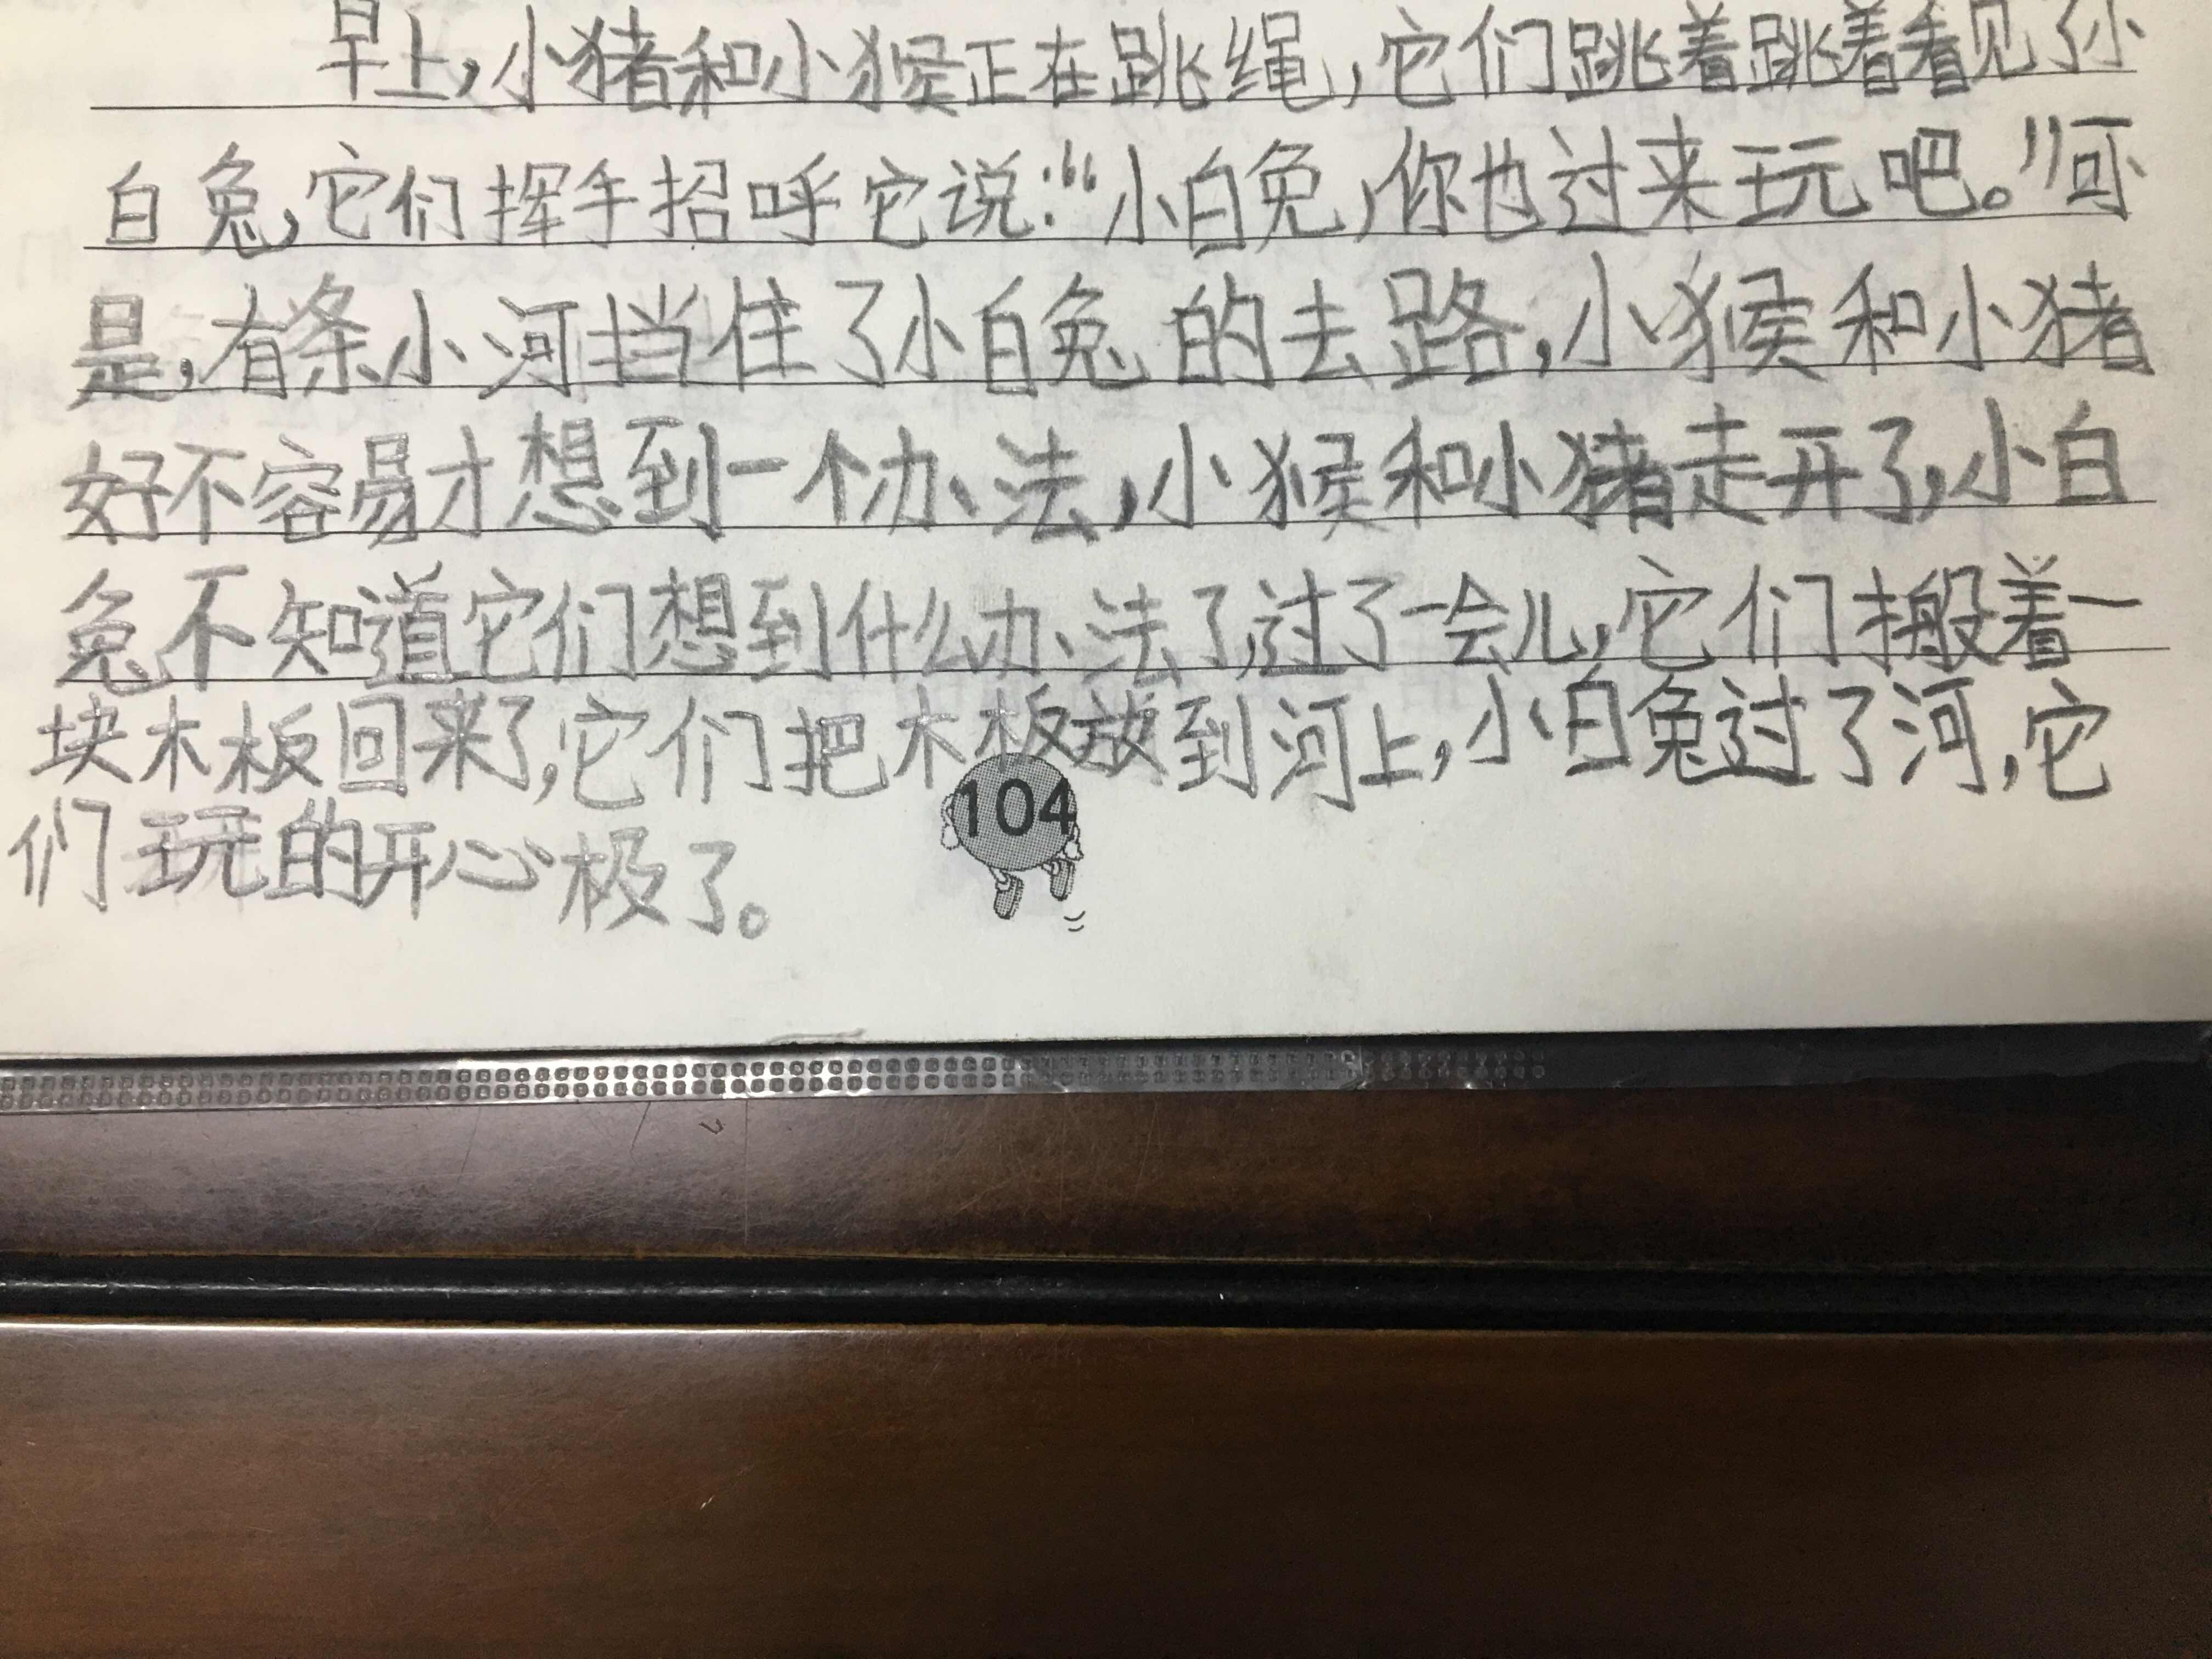 早上,小猪和小猴正在跳绳,它们跳着跳着看见了小
白兔,它们挥手招呼它说:“小白兔,你也过来玩吧。”可
是,有条小河挡住了小白兔的去路,小猴和小猪
好不容易才想到一个办法,小猴和小猪走开了,小白
兔不知道它们想到什么办法了,过了一会儿,它们搬着一
块木板回来了,它们把木板放到河上,小白兔过了河,它
们玩的开心极了。
104